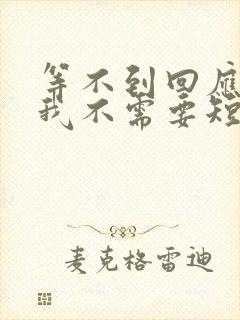 等不到回應
我不需要短
麦克格雷迪